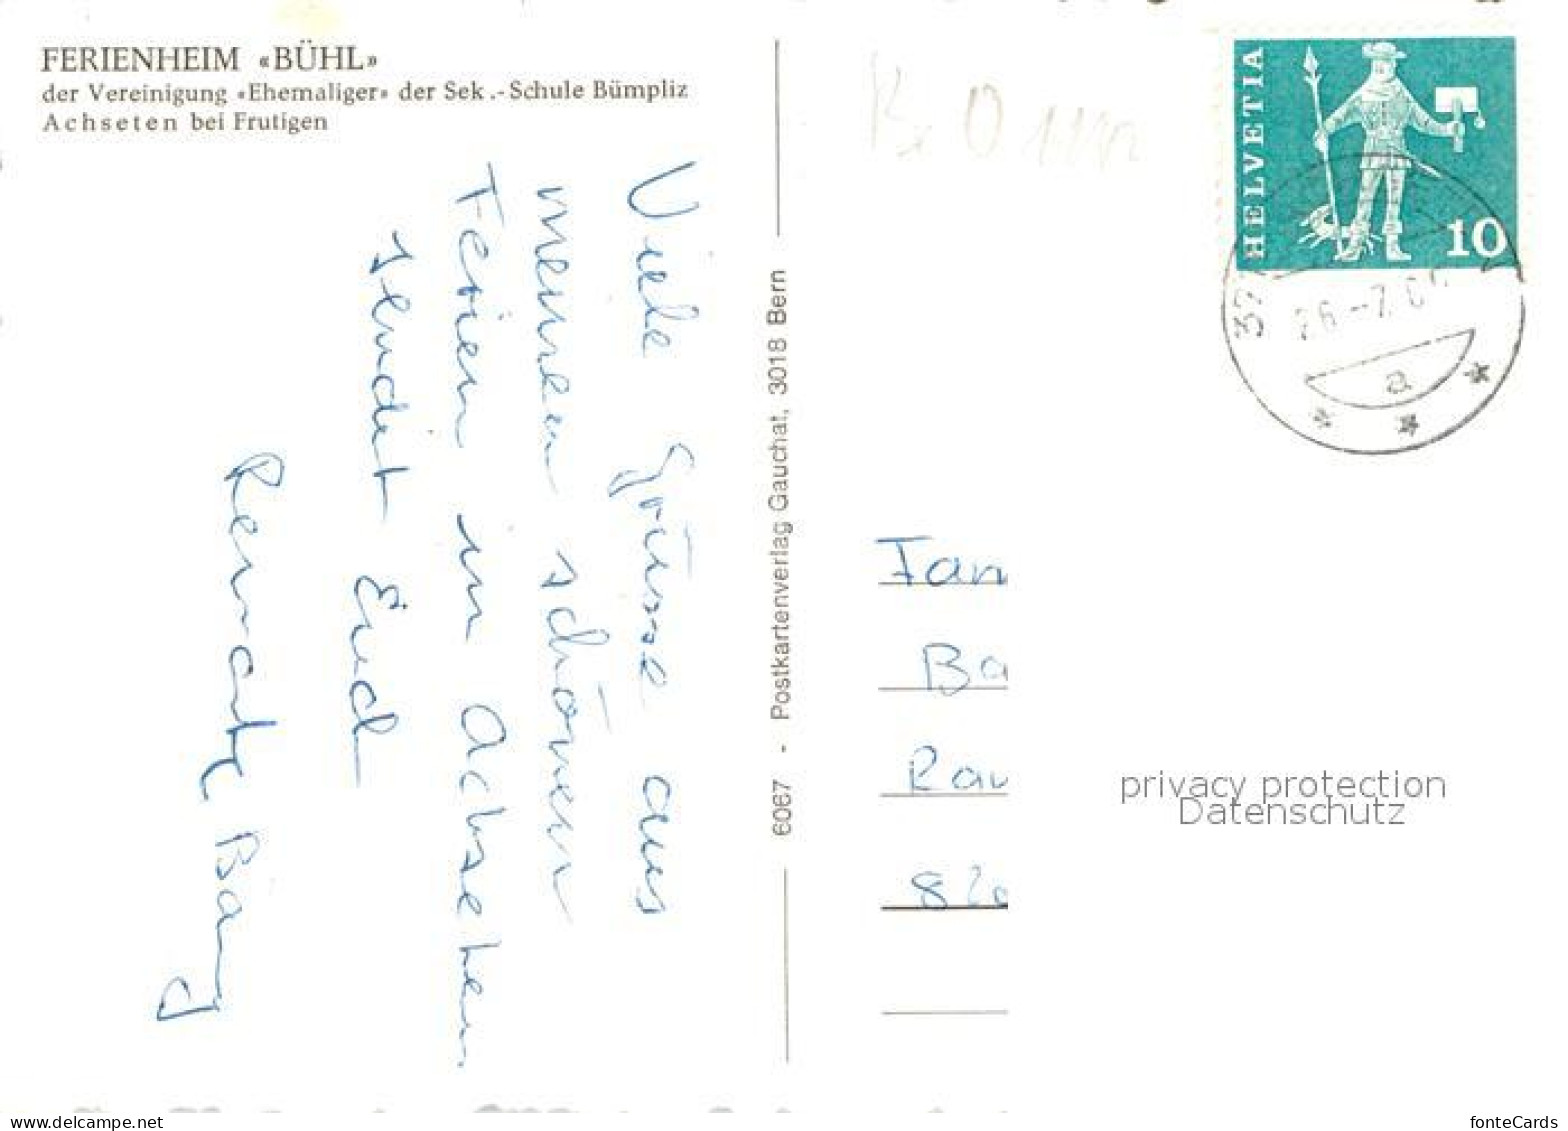 FERIENHEIM «BÜHL»
der Vereinigung «Ehemaliger» der Sek.-Schule Bümpliz
Achseten bei Frutigen
Viele Grüsse aus
meinen schönen
Ferien in Achseten
sendet Euch
Renate
6067 - Postkartenverlag Gauchat, 3018 Bern
HELVETIA
10
a
Fam
Ba
Rau
820
privacy protection
Datenschutz
delcampe.net
fonteCards